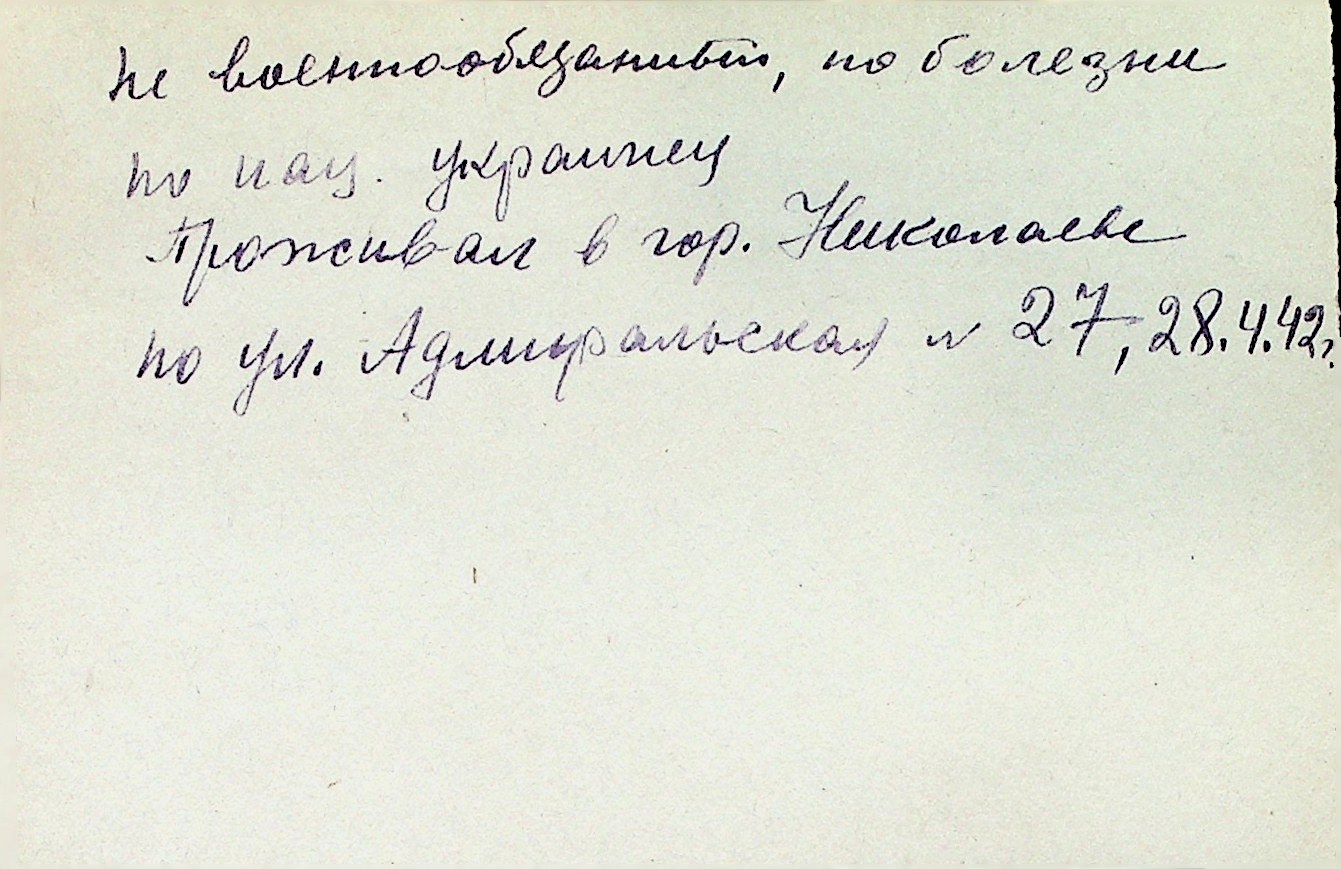 не военнообязанный, по болезни
по нац. украинец
Проживал в гор. Николаеве
по ул. Адмиральская № 27, 28.4.42г.